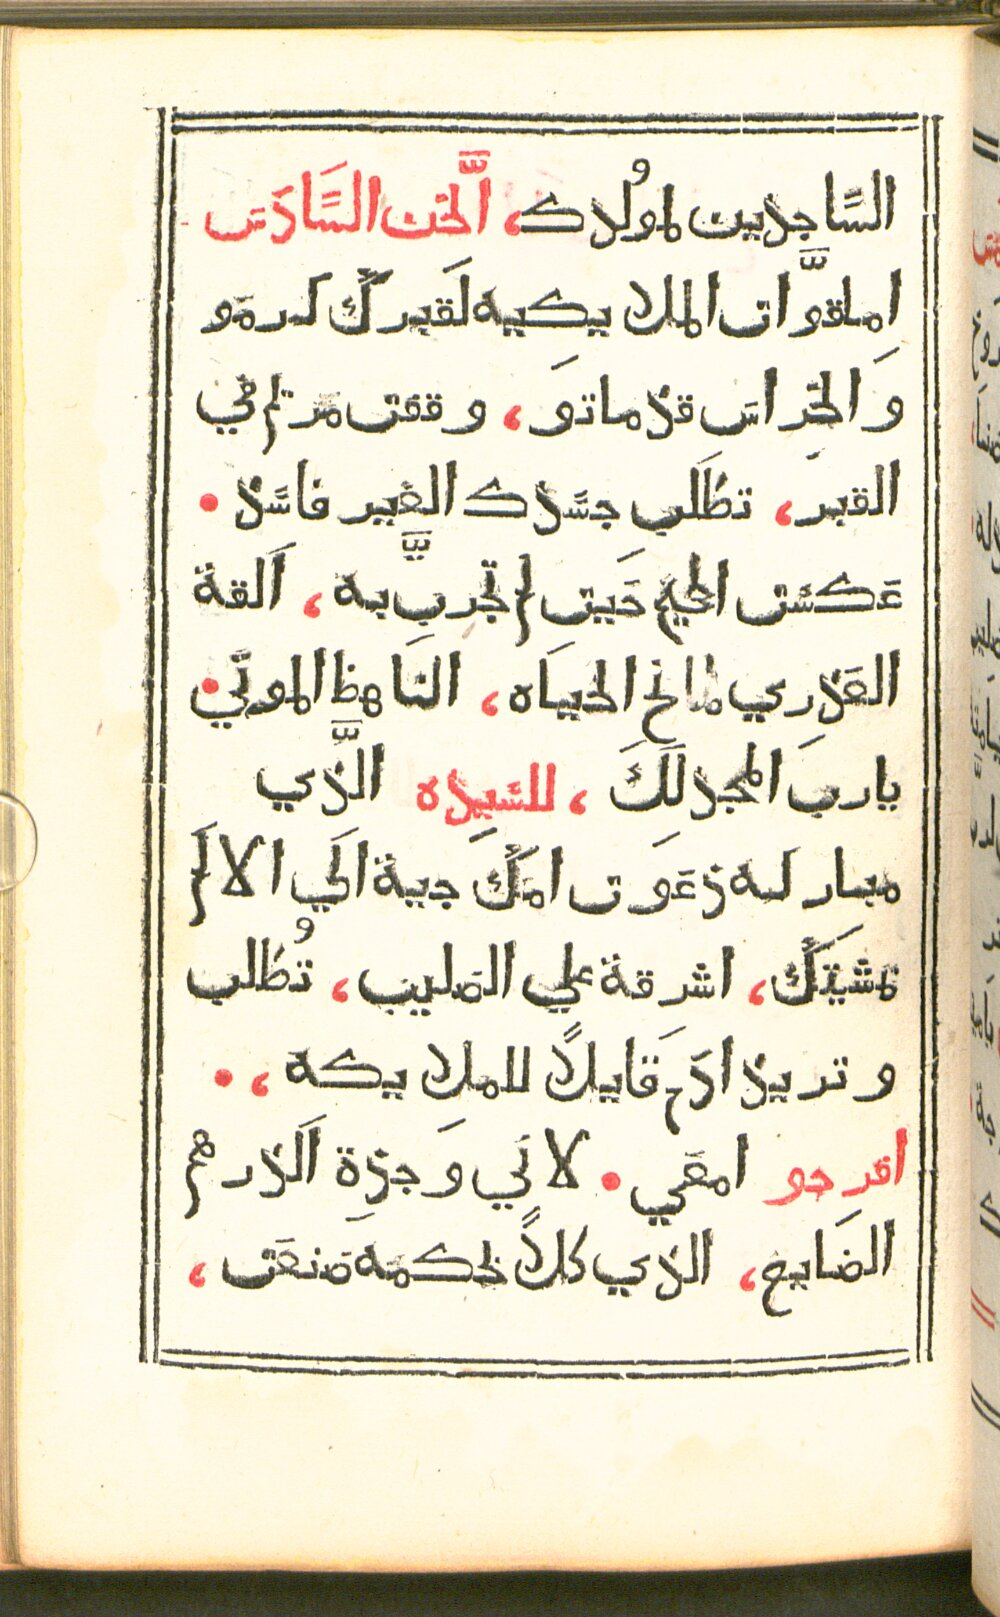 السَّاجدين لموُلدك، اَلَّحن السَّادَس
اما قوَّات الملا يكيه لَقبرك كَرمَو
وَ الحرِاسَ قد ماتوَ، و قفت مَريم في
القبر، تطَلب جسَدك الغير فاسَد •
عَكسَت الجحيم حَيت لم تجربَّ به، اَلقة
القدري لمانح الحيَاه، النَاهظ الموتي•
يارب المجد لَكَ، للسَيده الَّذي
مباركه زعَوَت امَكَ جية الَي الالَم
تمشيتَكَ، اشرقة علي الصَليب، تُطَلب
و تريد ادَم قَايلاً للملايكه، •
اقرحو امعَي • لاني وَجدَة اَلدرهم
الضَايع، الذي كلاً بحكمَة صَنعَت،